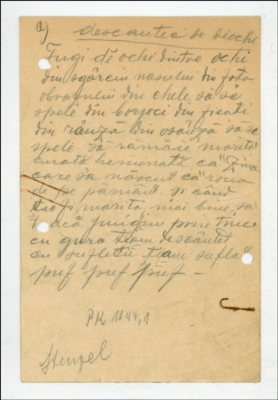 a)
descantic de diochi
Fugi dă ochi dintre ochi
din sgârciu nasului din fața
obrazului din chele să să
spele din borjoci din ficați
din rânza din osânza să să
spele să rămâie marita
curată luminată ca Zina
care sa născut ca roua
de pe pământ și când
marita mai bine să
treacă
cu gura team descântat
cu sufletu team suflat
puf puf puf –
PK 1044,1
Stenzel